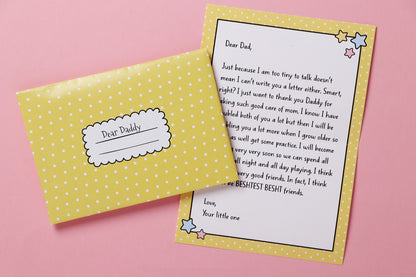 Dear Daddy
Dear Dad,
Just because I am too tiny to talk doesn't
mean I can't write you a letter either. Smart,
right? I just want to thank you Daddy for
aking such good care of mom. I know I have
ubled both of you a lot but then I will be
bling you a lot more when I grow older so
as well get some practice. I will become
very very soon so we can spend all
all night and all day playing. I think
very good friends. In fact, I think
BESHTEST BESHT friends.
Love,
Your little one